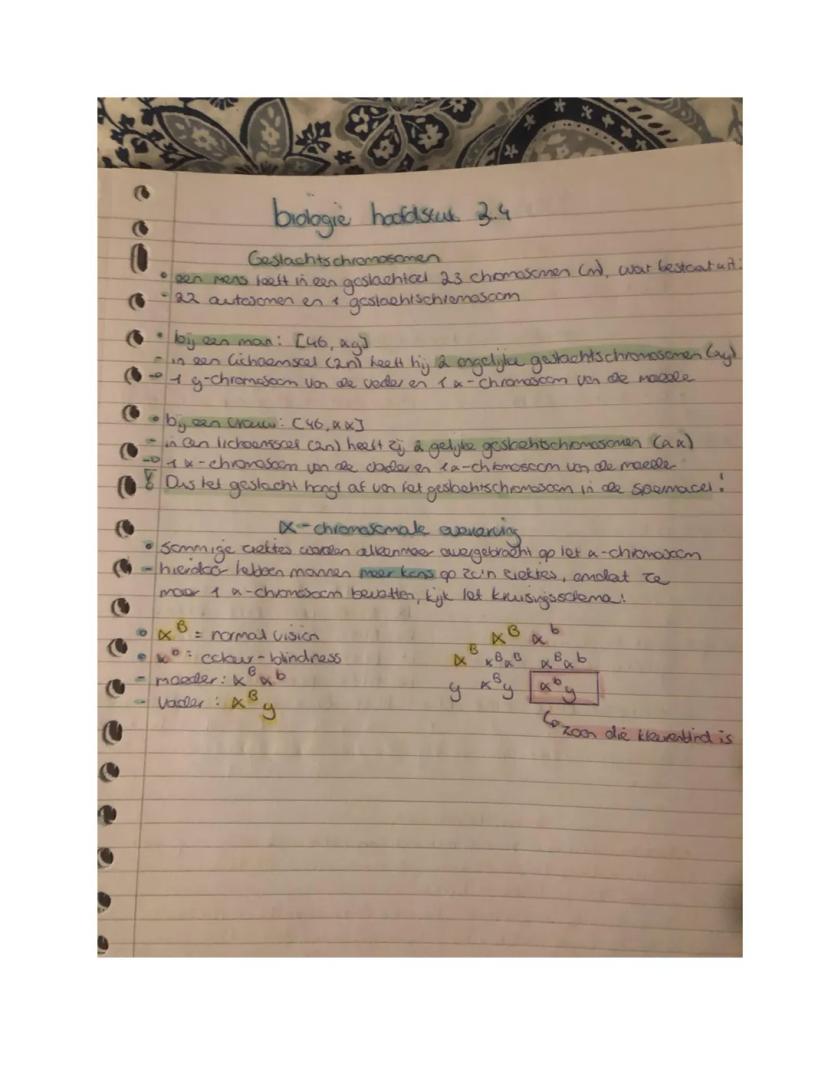 biologie hoofdstuk 3.4
Geslachtschromosomen
• een mens heeft in een geslachtcel 23 chromosomen (n), wat bestaat uit:
- 22 autosomen en 1 geslachtschromosoom
• bij een man: [46, xy]
- in een lichaamscel (2n) heeft hij 2 ongelijke geslachtschromosomen (xy)
→ 1 y-chromosoom van de vader en 1 x-chromosoom van de moeder
• bij een vrouw: [46, xx]
- in een lichaamscel (2n) heeft zij 2 gelijke geslachtschromosomen (xx)
→ 1 x-chromosoom van de vader en 1 x-chromosoom van de moeder
! Dus het geslacht hangt af van het geslachtschromosoom in de spermacel!
X-chromosomale overerving
• sommige ziektes worden alleenmaar overgebracht op het x-chromosoom
- hierdoor hebben mannen meer kans op zo'n ziektes, omdat ze
maar 1 x-chromosoom bevatten, kijk het kruisingsschema!
• x^B = normal vision
• x^b = colour-blindness
- moeder: x^B x^b
- vader: x^B y
x^B x^b
x^B x^B x^B x^B x^b
y x^B y x^b y
↳ zoon die kleurenblind is